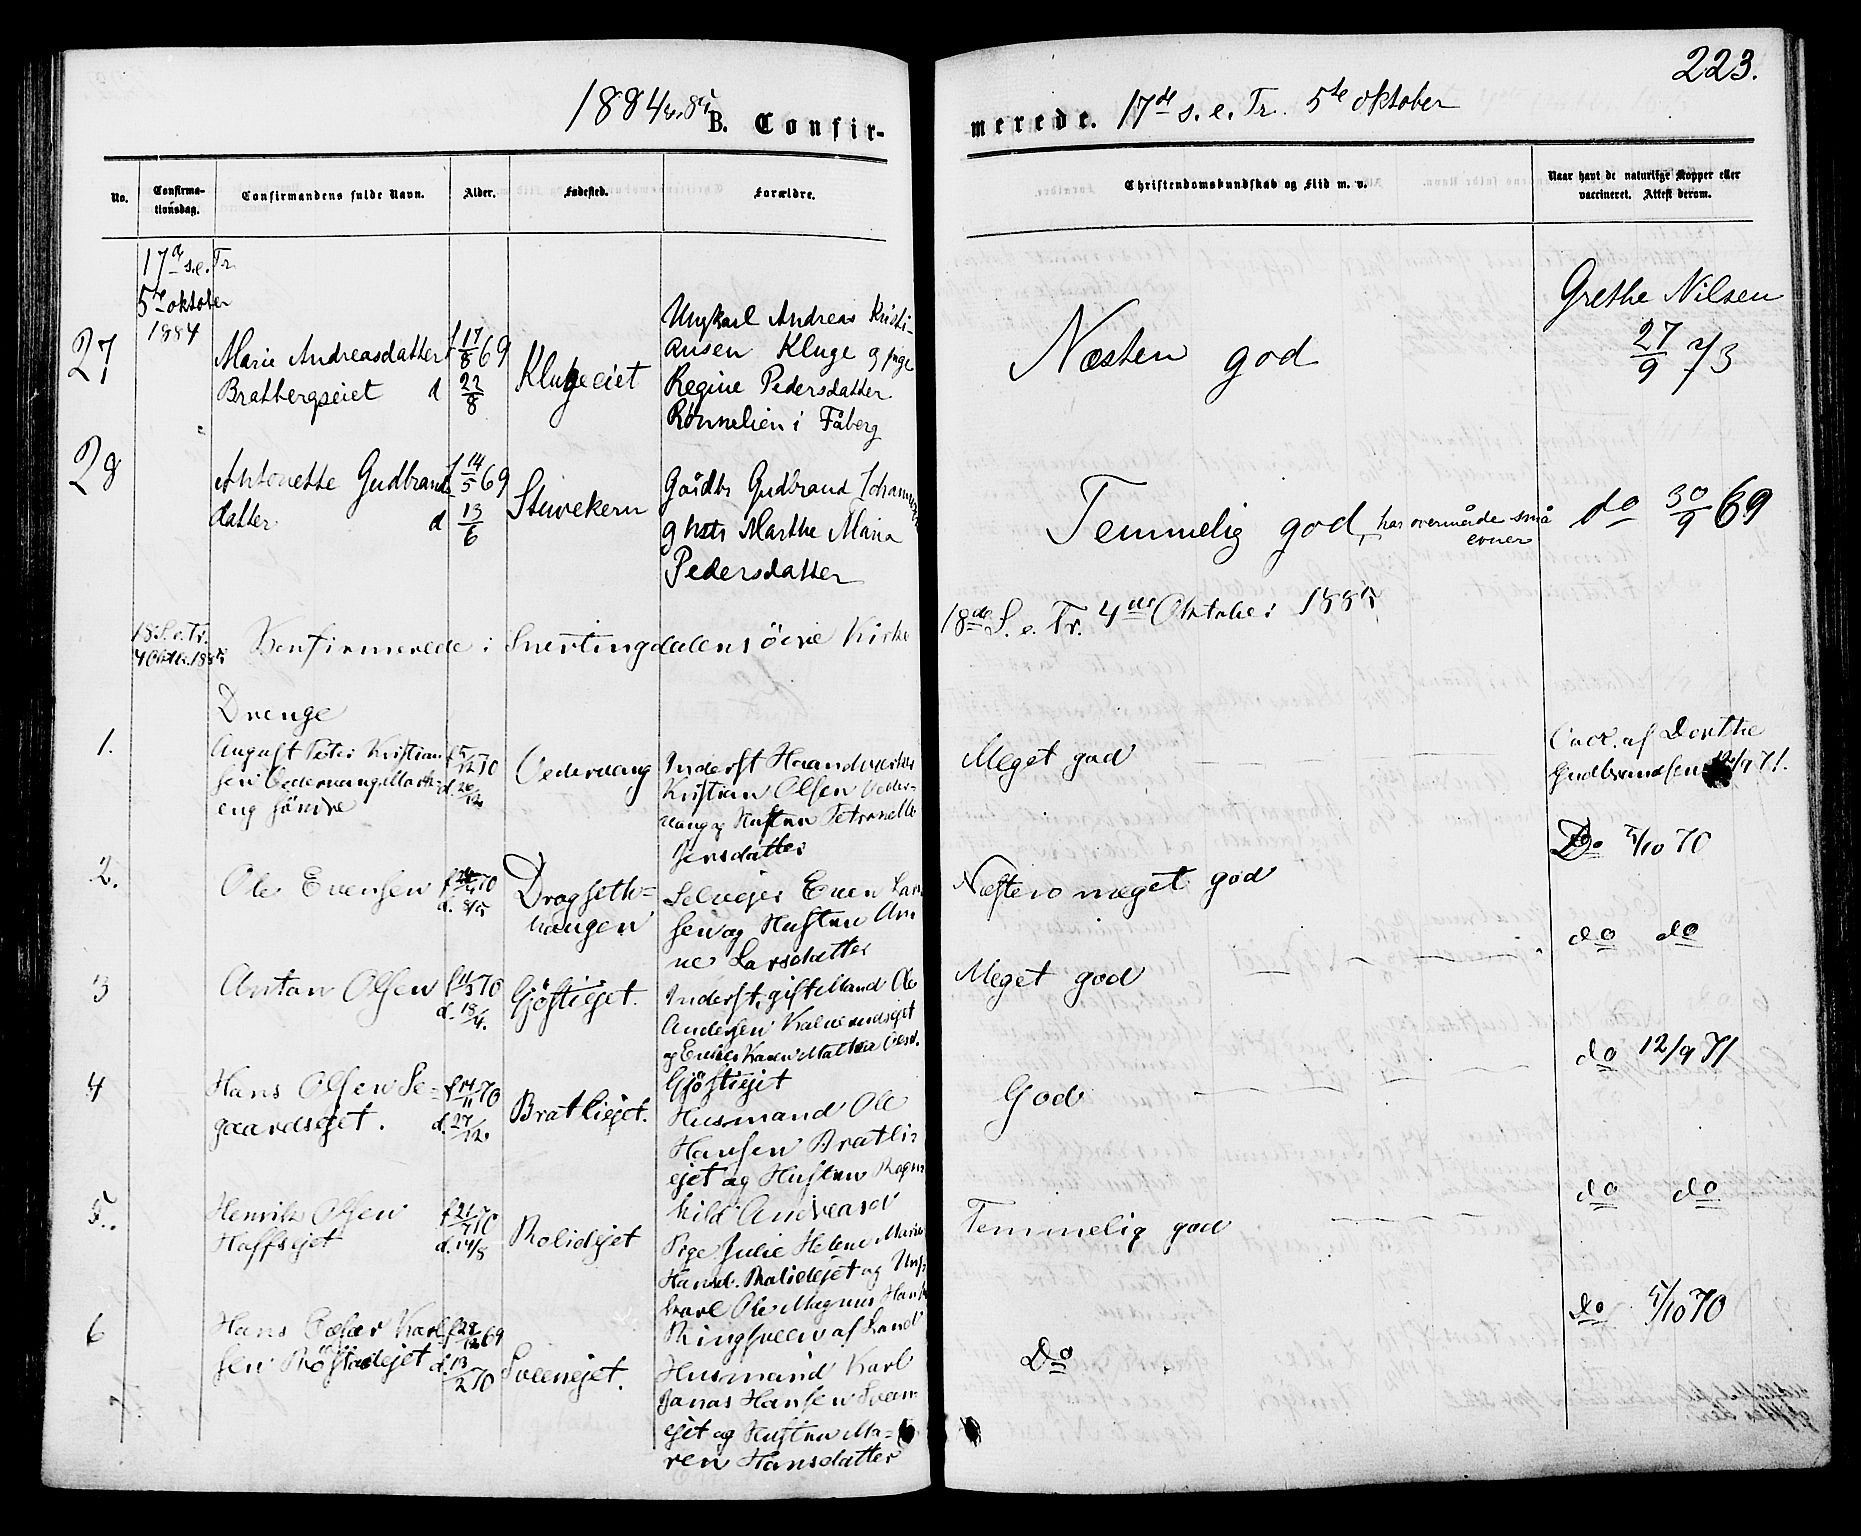 223.
1884
B. Confir-
merede. 17de s. e. Tr. 5te oktober
No.
Confirma-
tionsdag.
Confirmandens fulde Navn.
Alder.
Fødested.
Forældre.
Christendomskundskab og Flid m. v.
Naar havt de naturlige Kopper eller
vaccineret. Attest derom.
17de s.e. Tr
5te oktober
1884
27
Marie Andreasdatter
Bratbergseiet
f 17/8 69
d 22/8
Klugeeiet
Ungkarl Andreas Kristi-
ansen Kluge og pige
Regine Pedersdatter
Rønnelien i Fåberg
Næsten god
Grethe Nilsen
27/9 73
28
Antonette Gudbrands
datter
f 14/5 69
d 13/6
Stuvekern
Gårdbr Gudbrand Johannesen
og hstr Marthe Maria
Pedersdatter
Temmelig god, har overmåde små
evner
do 30/9 69
18 S. e. Tr.
4 Oktbr. 1885
Konfirmerede i Snertingdalens øvre Kirke
18de S. e. Tr. 4de Oktober 1885
Drenge
1.
August Peter Kristian
sen
f 5/12 70
d. 26/12
Vedervang
Inderst Haandverker
Kristian Olsen Veder-
vang og Hustru Petronelle
Jensdatter
Meget god
Vacc. af Dorthe
Gudbrandsen 12/9 71.
2.
Ole Evensen
70
d. 8/5
Dragseth-
haugen
Selveier Even Lar
sen og Hustru An
ne Larsdatter
Næsten meget god
Do 5/10 70
3
Anton Olsen
70
d. 18/4.
Gjøstiejet.
Inderst, gift Mand Ole
Andersen
Gjøstiejet
Meget god
do do
4
Hans Olsen Se-
gaardsejet.
f 14/11 70
d. 27/12.
Bratliejet.
Husmand Ole
Hansen Bratli-
ejet og Hustru Ragn
hild Andreasd
God
do 12/9 71
5.
Henrik Olsen
Haffsejet
f 21/7 70
d. 14/8
Rolidejet
Pige Julie Helene Marie
Hansd. Rolidejet og Ung-
karl Ole Magnus Hans
Ringsveen af Land
Temmelig god
do do
6
Hans Oskar Karl
sen
f 29/12 69
d. 13/2 70
Sveenejet.
Husmand Karl
Jonas Hansen Sveen
ejet og Hustru Ma-
ren Hansdatter
Do
do 5/10 70